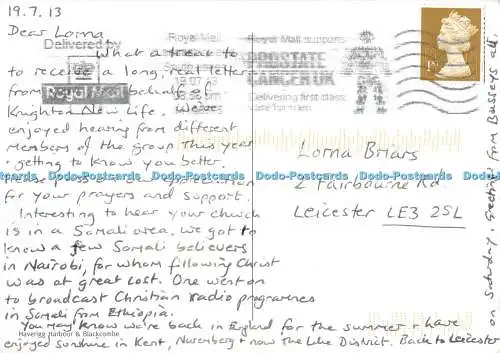 19.7.13
Dear Lorna
What a treat to
to receive a long, real letter
from you on behalf of
Knighton New Life. We've
enjoyed hearing from different
members of the group this year
- getting to know you better.
Please pass on our appreciation
for your prayers and support.
Interesting to hear your church
is in a Somali area. We got to
know a few Somali believers
in Nairobi, for whom following Christ
was at great cost. One went on
to broadcast Christian radio programmes
in Somali from Ethiopia.
Haverigg Harbour & Blackcombe
You may know we're back in England for the summer & have
enjoyed sunshine in Kent, Nuremberg & now the Lake District. Back to Leicester
on Saturday. Greetings from Busseys all.
Delivered by
Royal Mail
Royal Mail
19-07-2013
Royal Mail supports
PROSTATE
CANCER UK
Delivering first class
care for men
1st
Lorna Briars
2 Fairbourne Rd.
Leicester LE3 2SL
Dodo-Postcards Dodo-Postcards Dodo-Postcards Dodo-Postcards Dodo-Postcards